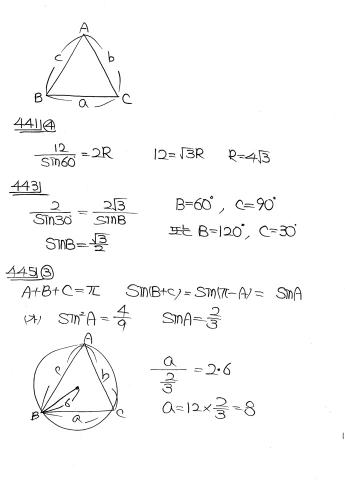 A
c b
B a C
441) ④
12/sin60 = 2R 12=√3R R=4√3
443)
2/sin30 = 2√3/sinB B=60°, C=90°
sinB=√3/2 또는 B=120°, C=30°
445) ③
A+B+C=π sin(B+C)=sin(π-A)= sinA
(식) sin²A=4/9 sinA=2/3
A
c b
6
B a C
a/(2/3) =2·6
a=12×2/3=8